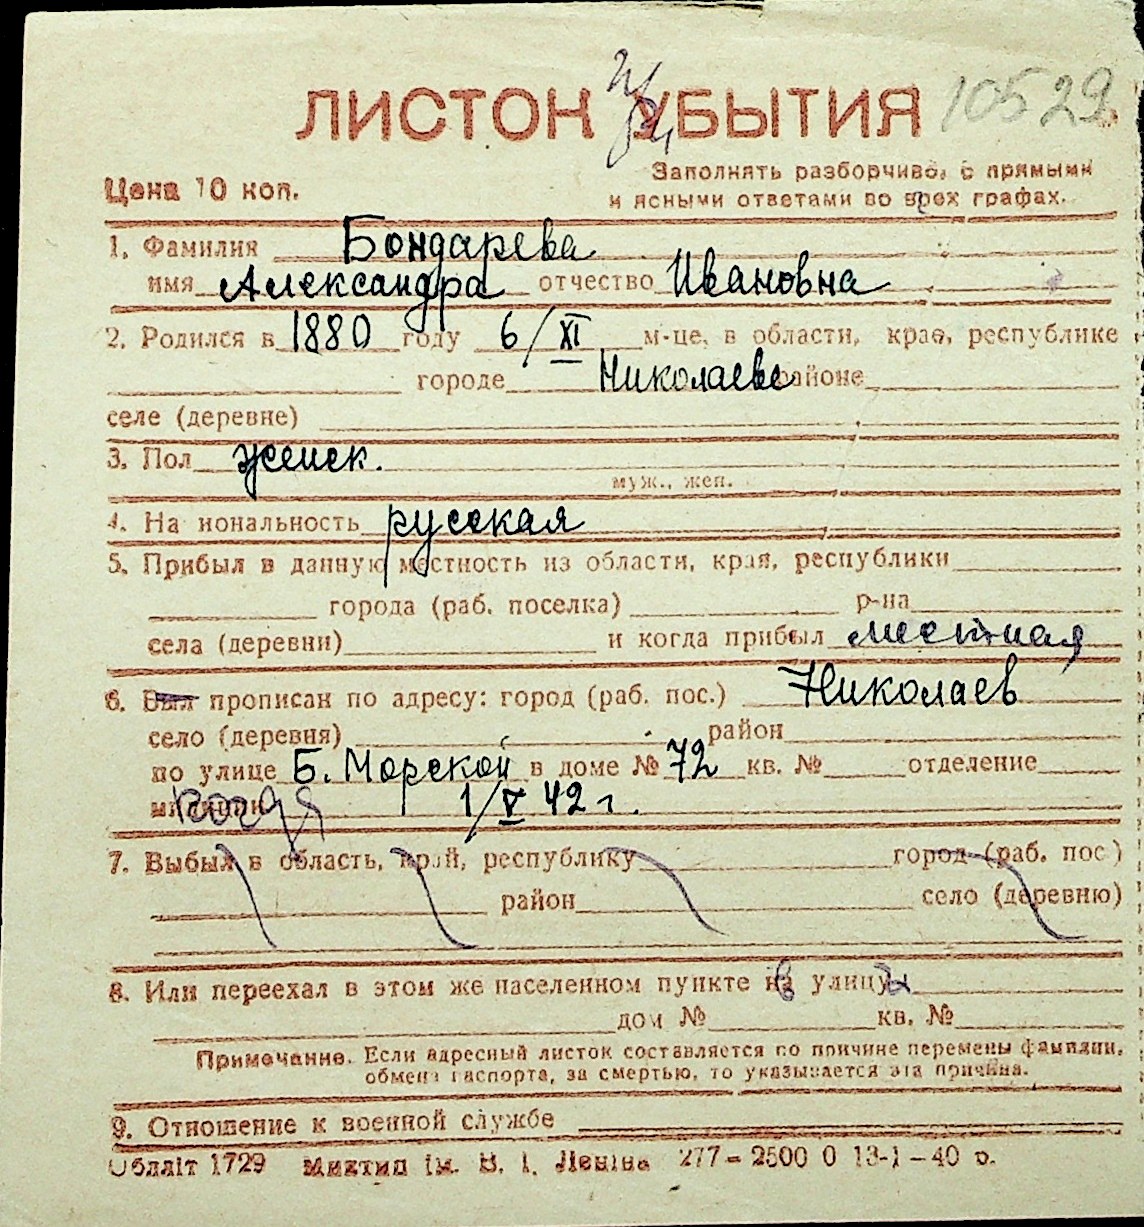 ЛИСТОК УБЫТИЯ 10529
Цена 10 коп.
Заполнять разборчиво, с прямыми
и ясными ответами во всех графах.
1. Фамилия Бондарева
имя Александра отчество Ивановна
2. Родился в 1880 году 6/XI м-це, в области, крае, республике
городе Николаеве районе
селе (деревне)
3. Пол женск.
муж., жен.
4. На иональность русская
5. Прибыл в данную местность из области, края, республики
города (раб. поселка) р-на
села (деревни) и когда прибыл местная
6. Был прописан по адресу: город (раб. пос.) Николаев
село (деревня) район
по улице Б. Морской в доме № 72 кв. № отделение
милиции когда 1/V 42 г.
7. Выбыл в область, край, республику город (раб. пос)
район село (деревню)
8. Или переехал в этом же населенном пункте на улицу
дом № кв. №
Примечание. Если адресный листок составляется по причине перемены фамилии,
обмена паспорта, за смертью, то указывается эта причина.
9. Отношение к военной службе
Обліт 1729 Миктип ім. В. І. Леніна 277–2500 0 13-1–40 р.